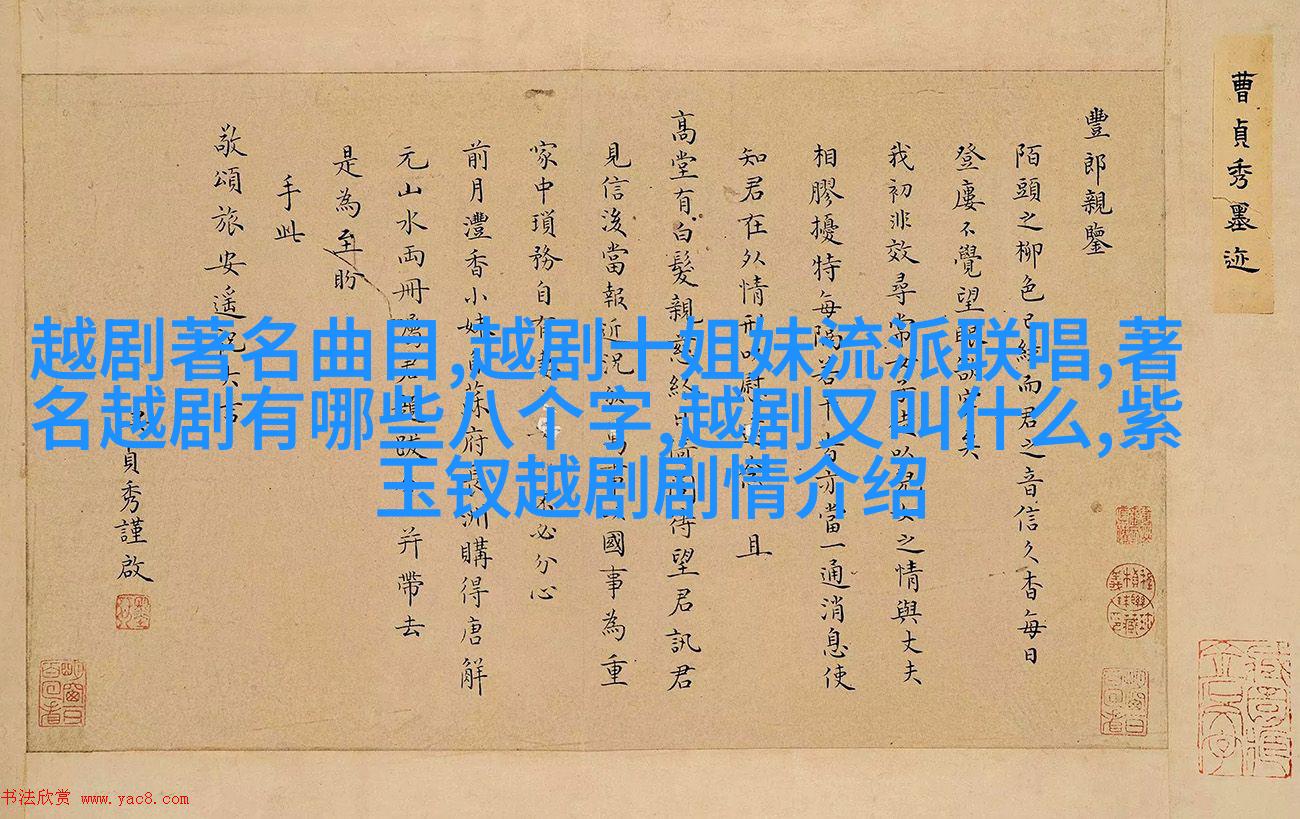 曹貞秀墨迹
豐郎親鑒
陌頭之柳色已綠而君之音信久杳每日
登廔不覺望眼矣
我初非效尋常以兒女之情與丈夫
相膠擾特每隔若干方亦當一通消息使
知君在外情形以慰且
高堂有白髮親終日待望君訊君
見信後當報近況國事為重
家中瑣務自有不必分心
前月灃香小妹自蘇府長洲購得唐解
元山水兩冊屬君題跋并帶去
是為至盼
手此
敬頌旅安遙祝大吉
貞秀謹啟
越剧著名曲目,越剧十姐妹流派联唱,著
名越剧有哪些八个字,越剧又叫什么,紫
玉钗越剧剧情介绍
书法欣赏 www.yac8.com